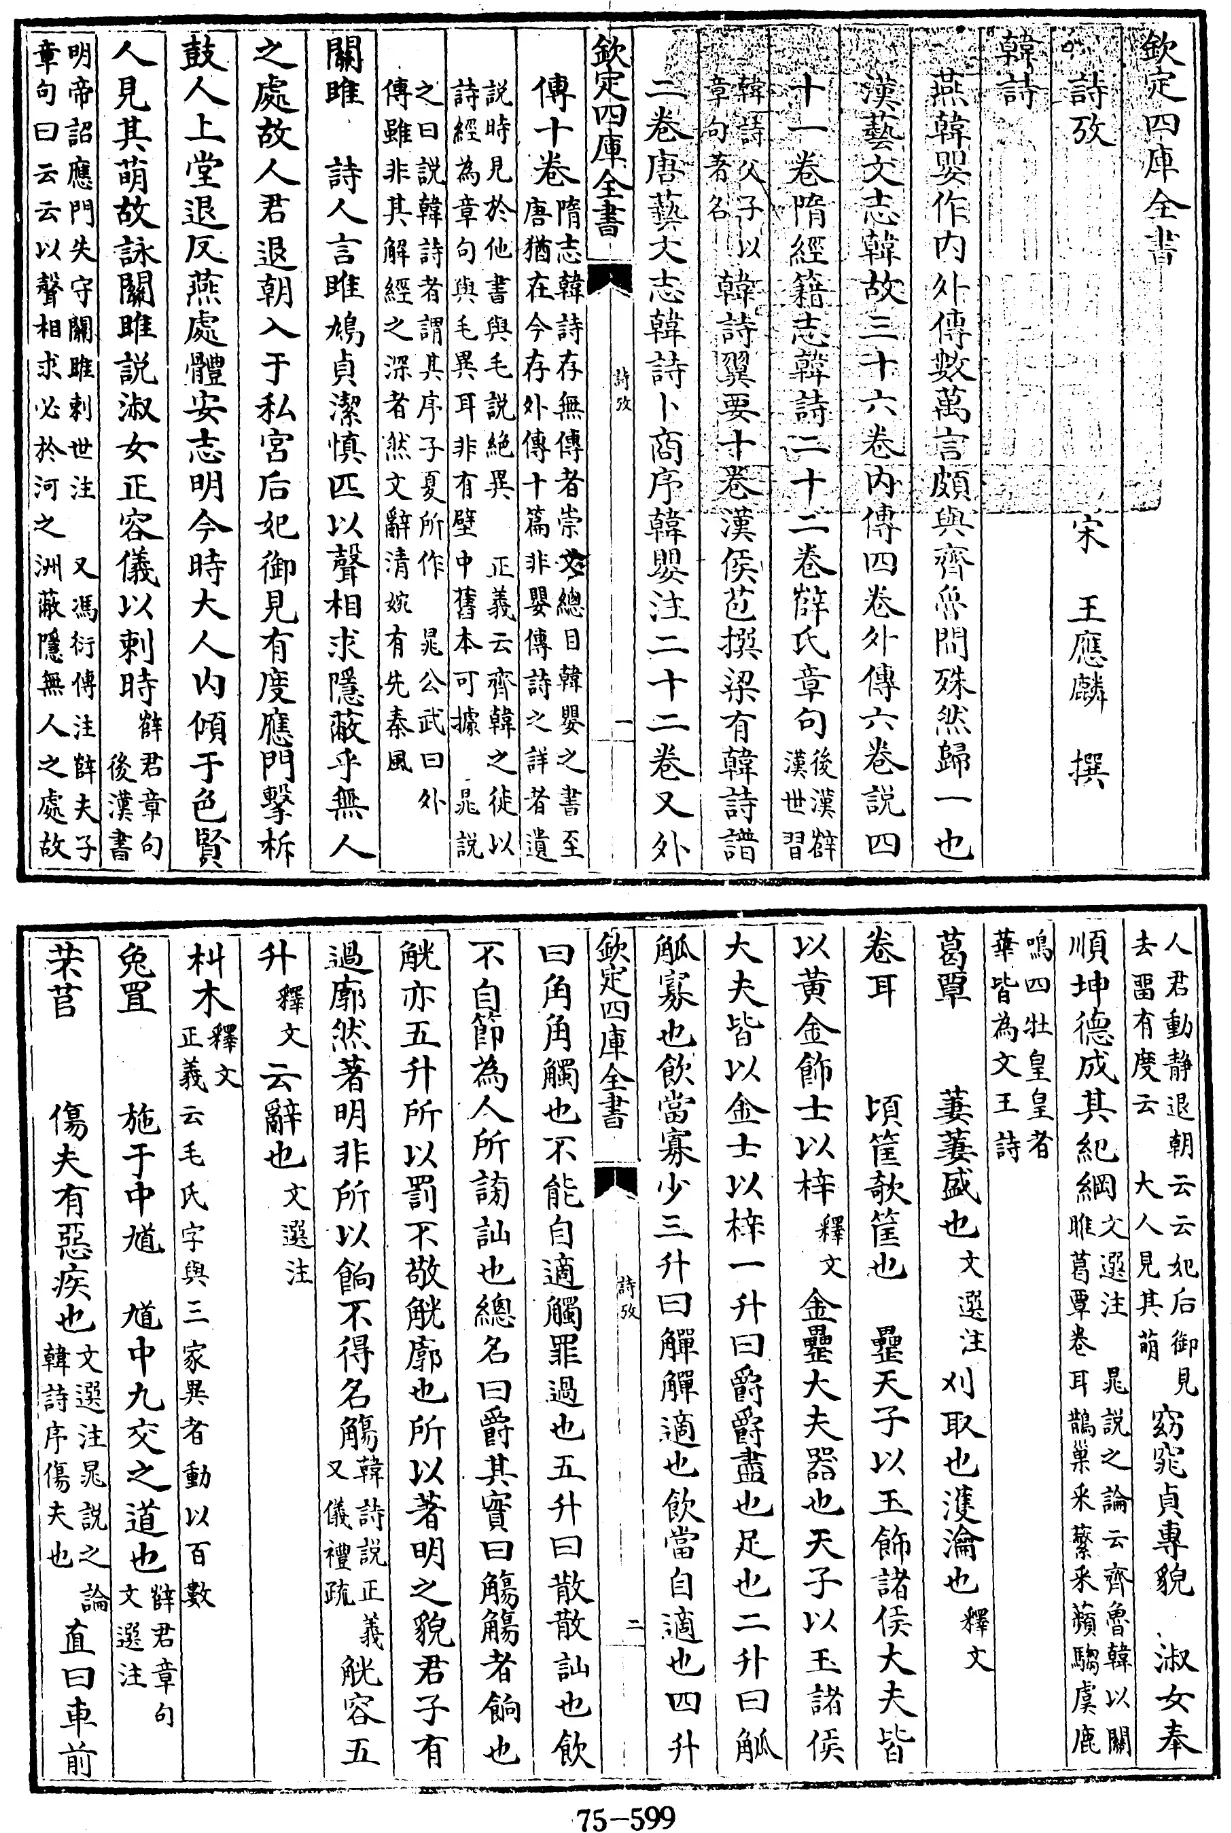 欽定四庫全書
詩攷
宋 王應麟 撰
韓詩
燕韓嬰作内外傳數萬言頗與齊魯間殊然歸一也
漢藝文志韓故三十六卷内傳四卷外傳六卷説四
十一卷隋經籍志韓詩二十二卷薛氏章句後漢薛
漢世習
韓詩父子以
章句著名
韓詩翼要十卷漢侯苞撰梁有韓詩譜
二卷唐藝文志韓詩卜商序韓嬰注二十二卷又外
欽定四庫全書
詩攷
一
傳十卷隋志韓詩存無傳者崇文總目韓嬰之書至
唐猶在今存外傳十篇非嬰傳詩之詳者遺
説時見於他書與毛説絶異 正義云齊韓之徒以
詩經為章句與毛異耳非有壁中舊本可據 晁説
之曰説韓詩者謂其序子夏所作 晁公武曰外
傳雖非其解經之深者然文辭清婉有先秦風
關雎 詩人言雎鳩貞潔慎匹以聲相求隱蔽乎無人
之處故人君退朝入于私宮后妃御見有度應門擊柝
鼓人上堂退反燕處體安志明今時大人内傾于色賢
人見其萌故詠關雎説淑女正容儀以刺時薛君章句
後漢書
明帝詔應門失守關雎刺世注 又馮衍傳注薛夫子
章句曰云云以聲相求必於河之洲蔽隱無人之處故
人君動静退朝云云妃后御見
去畱有度云 大人見其萌
窈窕貞專貌 淑女奉
順坤德成其紀綱文選注 晁説之論云齊魯韓以關
雎葛覃卷耳鵲巢采蘩采蘋騶虞鹿
鳴四牡皇皇者
華皆為文王詩
葛覃 萋萋盛也文選注刈取也濩瀹也釋文
卷耳 頃筐欹筐也 罍天子以玉飾諸侯大夫皆
以黄金飾士以梓釋文金罍大夫器也天子以玉諸侯
大夫皆以金士以梓一升曰爵爵盡也足也二升曰觚
觚寡也飲當寡少三升曰觶觶適也飲當自適也四升
欽定四庫全書
詩攷
二
曰角角觸也不能自適觸罪過也五升曰散散訕也飲
不自節為人所謗訕也總名曰爵其實曰觴觴者餉也
觥亦五升所以罰不敬觥廓也所以著明之貌君子有
過廓然著明非所以餉不得名觴韓詩説正義
又儀禮疏
觥容五
升釋文云辭也文選注
朻木釋文
正義云毛氏字與三家異者動以百數
兔罝 施于中馗 馗中九交之道也薛君章句
文選注
芣苢 傷夫有惡疾也文選注晁説之論
韓詩序傷夫也
直曰車前
75-599